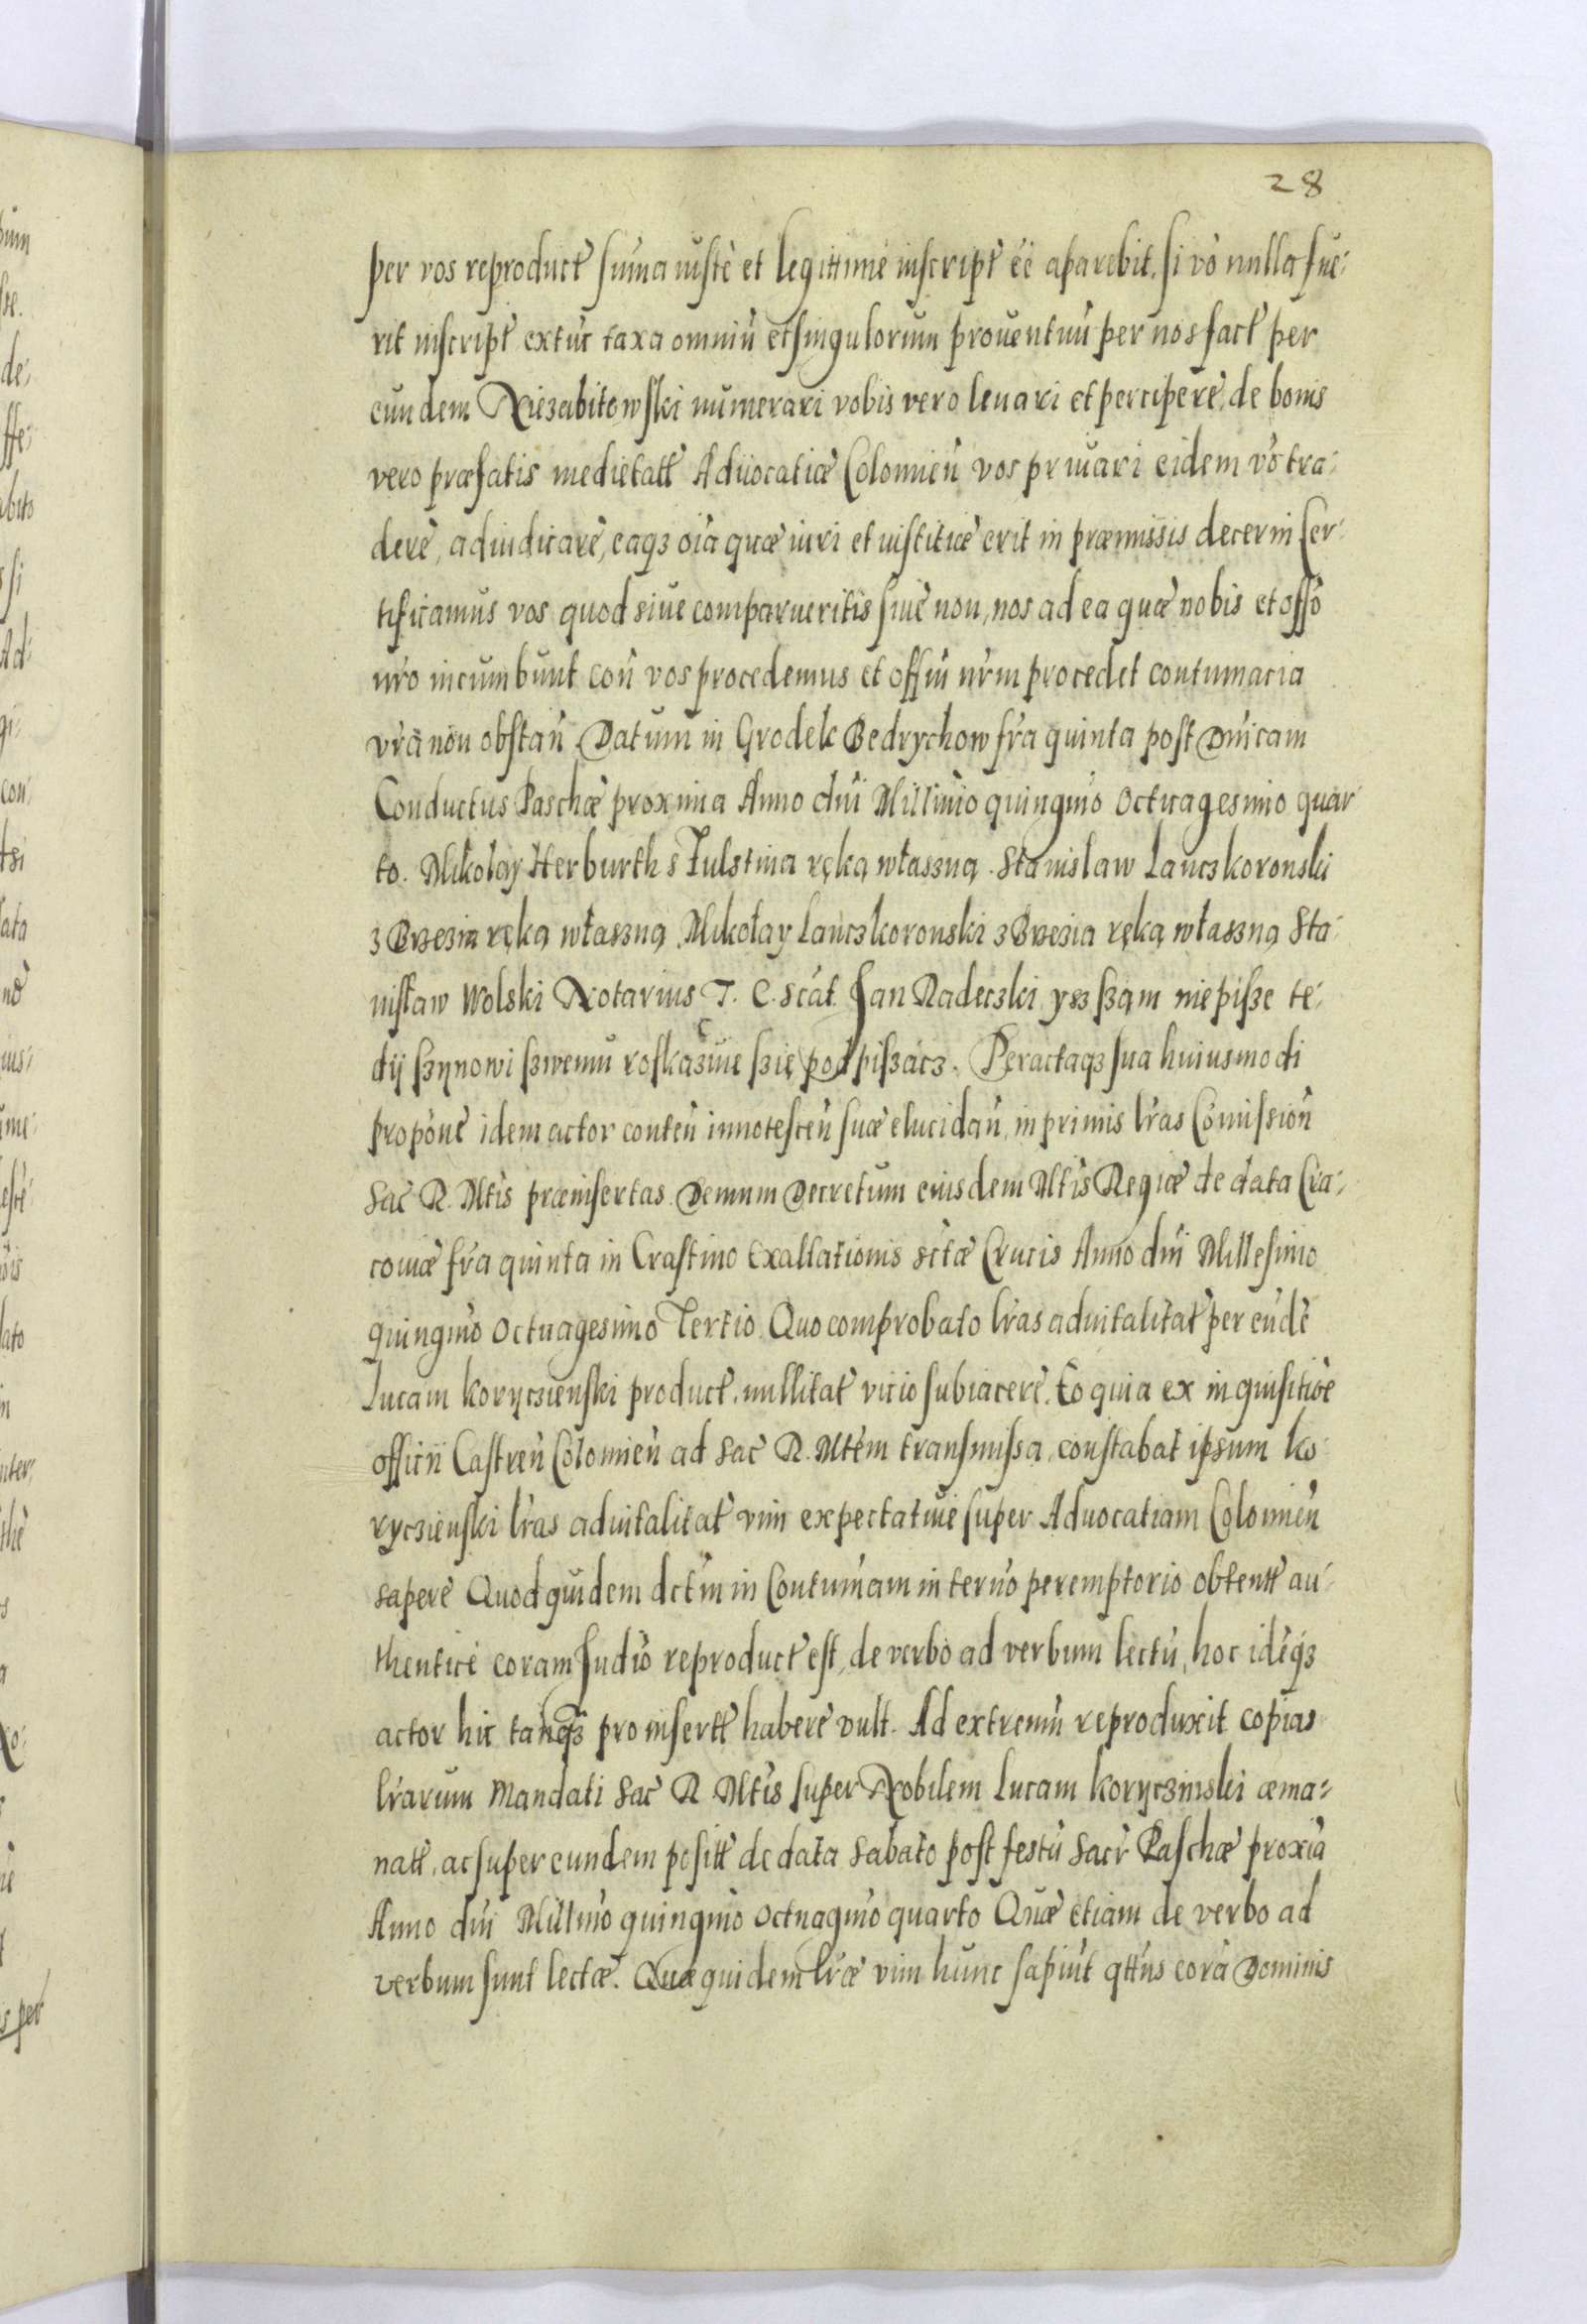 28
per vos reproduct̃ sum̃a iustè et legittimè inscript̃ ẽẽ aparebit, si vo nulla fue-
rit inscript̃ extũc taxa omniũ et singulorum prouentuũ per nos fact̃ per
eundem Niezabitowski numerari vobis vero leuari et percipere, de bonis
vero præfatis medietatt̃ Aduocatiæ Colomien̄ vos priuari eidem vo tra-
dere, adiudicare, eaqз oĩa quæ iuri et iustitiæ erit in præmissis decerni Cer-
tificamus vos quod siue comparueritis siue non, nos ad ea quæ nobis et offo
nr̃o incumbunt con̄ vos procedemus et offiũ nr̃m procedet contumacia
vr̃a non obstan̄ Datum in Grodek Bedrychow fr̃a quinta post Dñicam
Conductus Paschæ proxima Anno dñi Mill̃imo quingmo Octuagesimo quar
to. Mikołay Herburth s Fulstina ręką własзną. Stanislaw Lanczkoronski
з Brzezia ręką własзną Mikołay Lanczkoronski з Brzezia ręką własзną Sta-
nisław Wolski Notarius T. C. scãt Jan Radeczki ysз sзąm niepisзe te-
dij sзynowi sзwemu roskaзuie sзię podpisзacз. Peractaqз sua huiusmodi
propone idem actor conten̄ innotescen̄ suæ elucidan̄, in primis lr̃as Comission̄
Sac̃ R. Mtis præinsertas Demum Decretum eiusdem Mtis Regiæ de data Cra-
couiæ fr̃a quinta in Crastino Exaltationis sctæ Crucis Anno dñi Millesimo
quingmo Octuagesimo Tertio Quo comprobato lr̃as aduitalitat̃ per eũdẽ
Lucam Korycзienski product̃, nullitat̃ vicio subiacere. Eo quia ex inquisitioe
officii Castren̄ Colomien̄ ad Sac̃ R. Mtem transmissa, constabat ipsum Ko
rycзienski lr̃as aduitalitat̃ vim expectatiue super Aduocatiam Colomien̄
sapere Quod quidem dctm in Contumam in termo peremptorio obtentt̃ au-
thentice coram Judio reproduct̃ est, de verbo ad verbum lectũ, hoc idẽqз
actor hic tanqз pro insertt̃ habere vult. Ad extremũ reproduxit copias
lr̃arum Mandati Sac̃ R Mtis super Nobilem Lucam Korycзinski æma-
natt̃, ac super eundem positt̃ de data Sabato post festũ Sacr̃ Paschæ proxĩa
Anno dñi Mill̃mo quingmo Octuagmo quarto Quæ etiam de verbo ad
verbum sunt lectæ. Quæ quidem lr̃æ vim hunc sapiũt qtt̃us corã Dominis